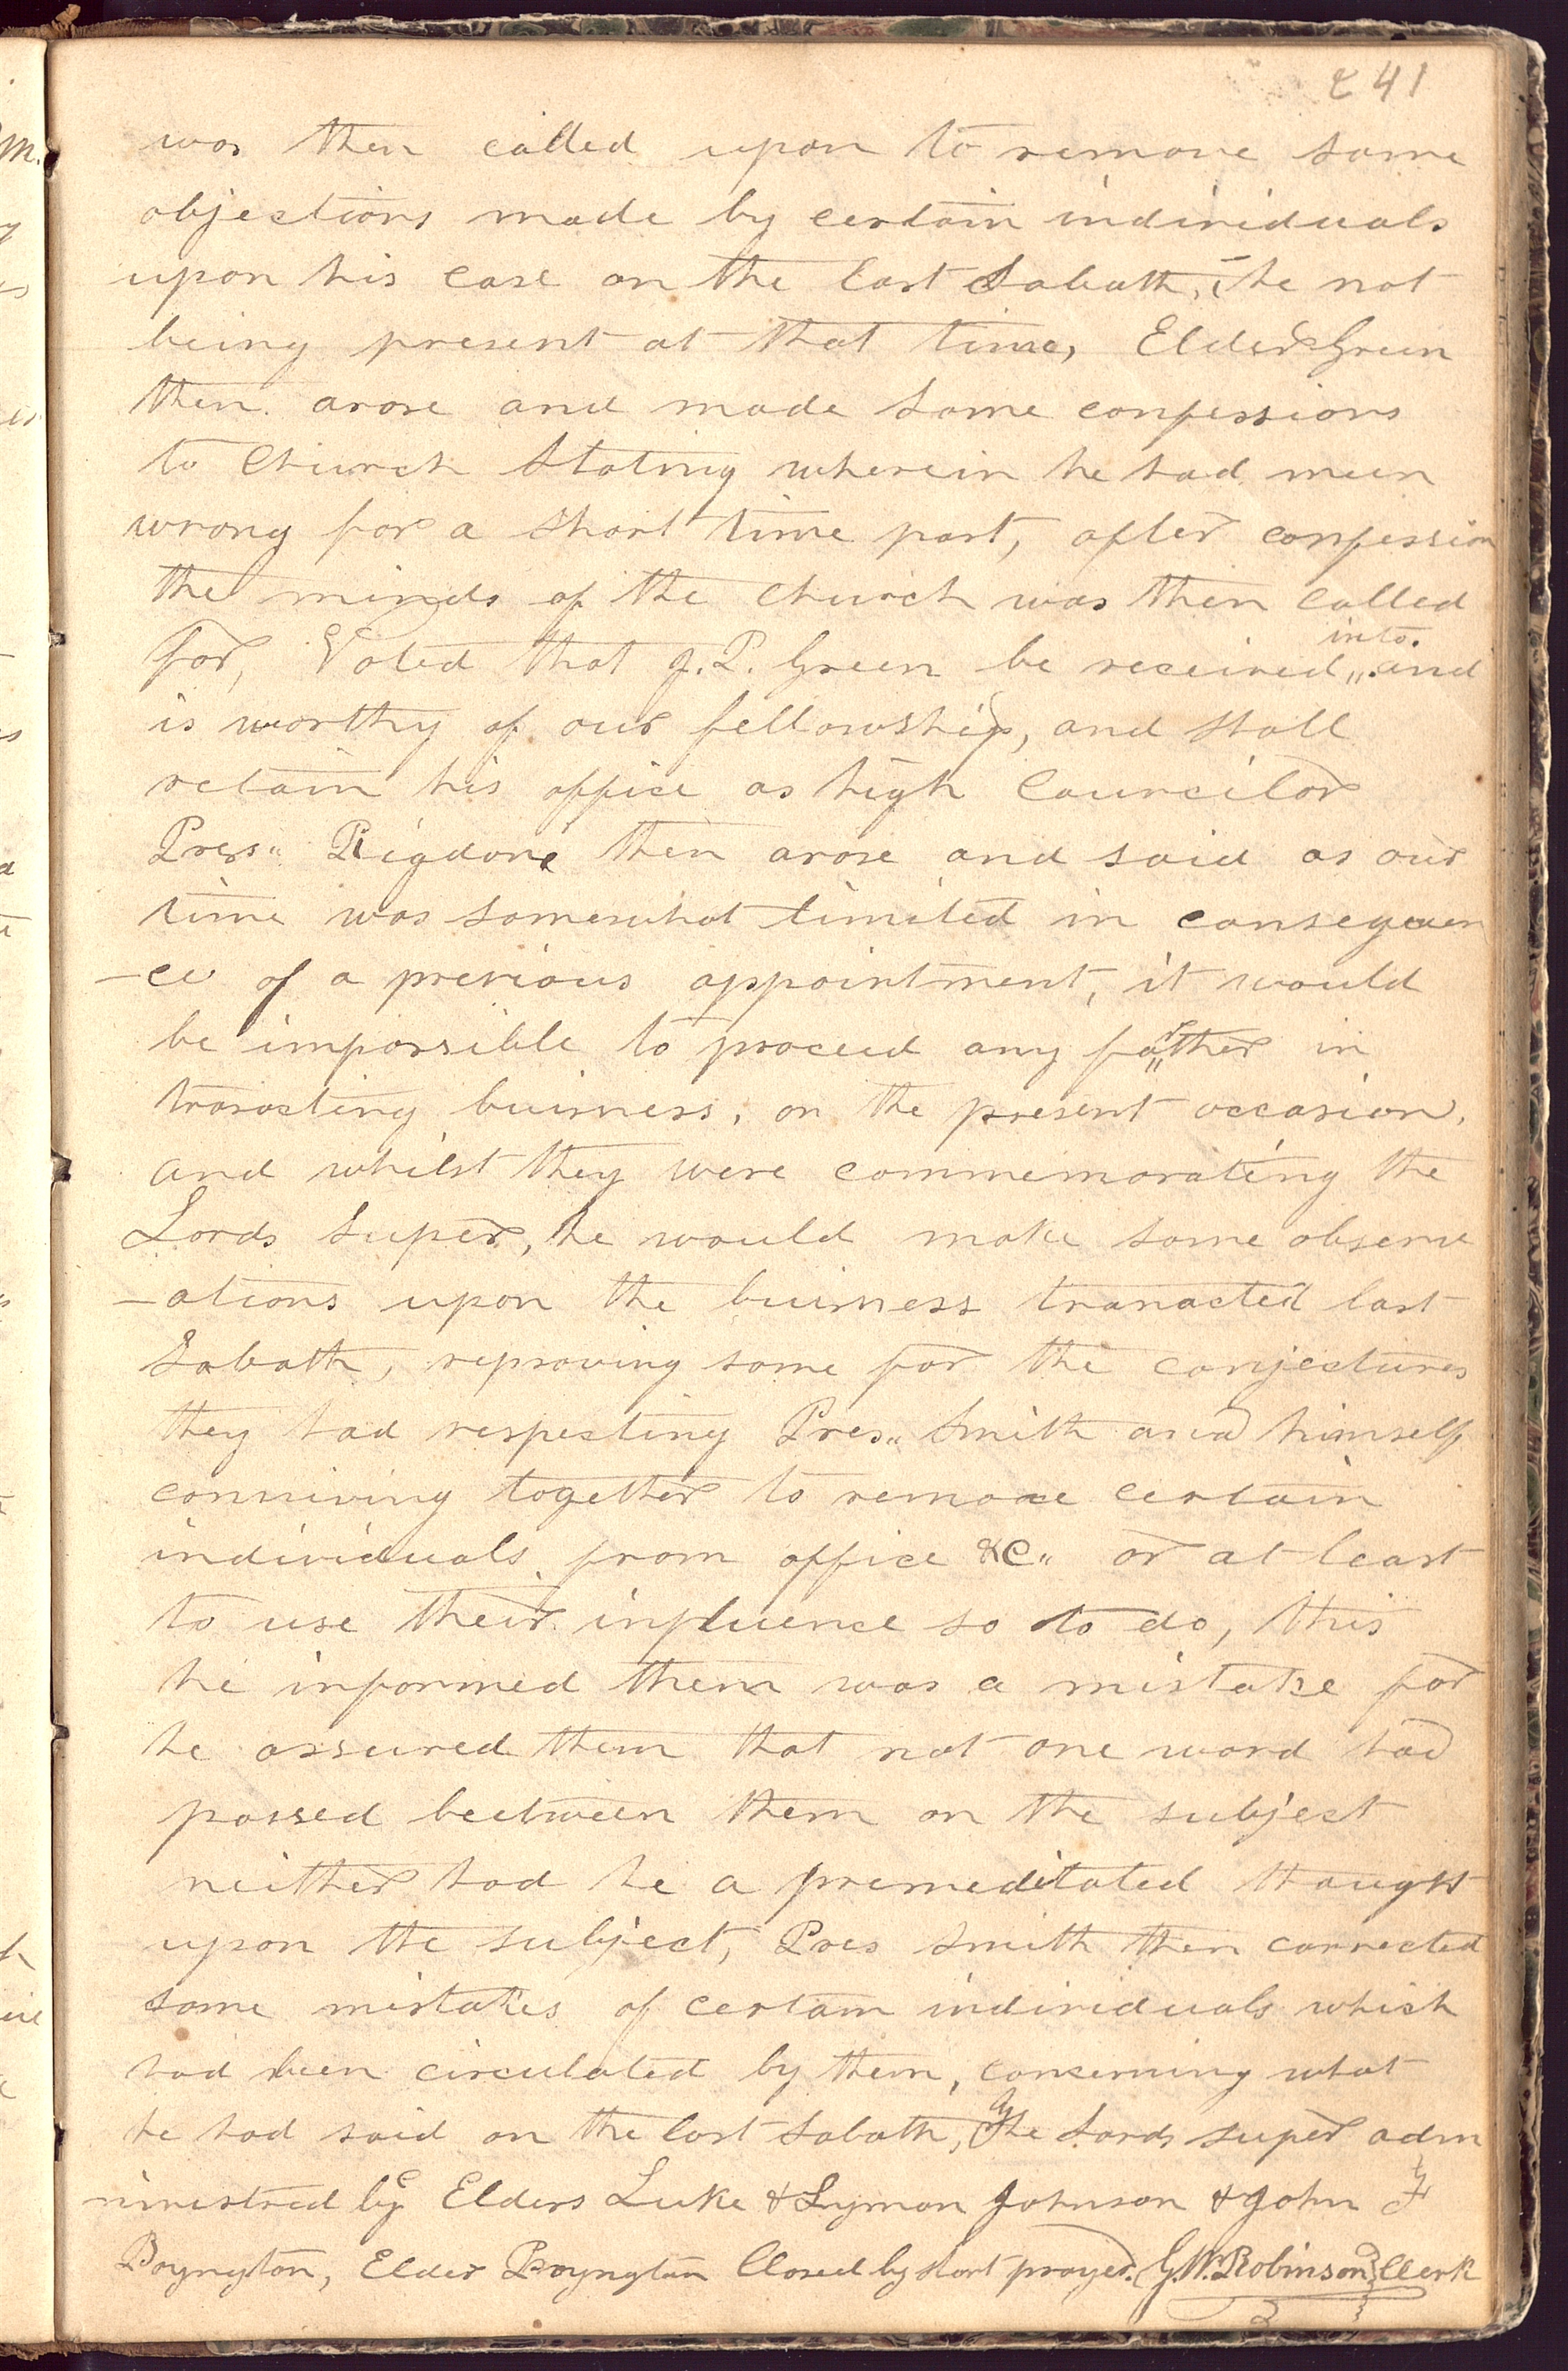 241
was then called upon to remove some
objections made by certain individuals
upon his case on the last Sabath, he not
being present at that time, Elder Green
then arose and made some confessions
to Church Stating wherein he had meen
wrong for a short time past, after confession
the minds of the church was then called
for, Voted that J. P. Green be received into and
is worthy of our fellowship, and shall
retain his office as high Councilor
Pres" Rigdon then arose and said as our
time was somewhat limited in consequen
-ce of a previous appointment, it would
be impossible to proceed any farther in
transacting buisness, on the present occasion,
and whilst they were commemorating the
Lords Super, he would make some observe
-ations upon the buisness transacted last
Sabath, reproving some for the conjectures
they had respecting Pres" Smith and himself
conniving together to remove certain
individuals from office &C" or at least
to use their influence so to do, this
he informed them was a mistake for
he assured them that not one word had
passed beetween them on the subject
neither had he a premeditated thought
upon the subject, Pres Smith then corrected
some mistakes of certain individuals which
had been circulated by them, concerning what
he had said on the last Sabath, The Lords super adm
ninestred by Elders Luke & Lyman Johnson & John F
Boyngton, Elder Boyngton Closed by short prayer. G. W. Robinson Clerk